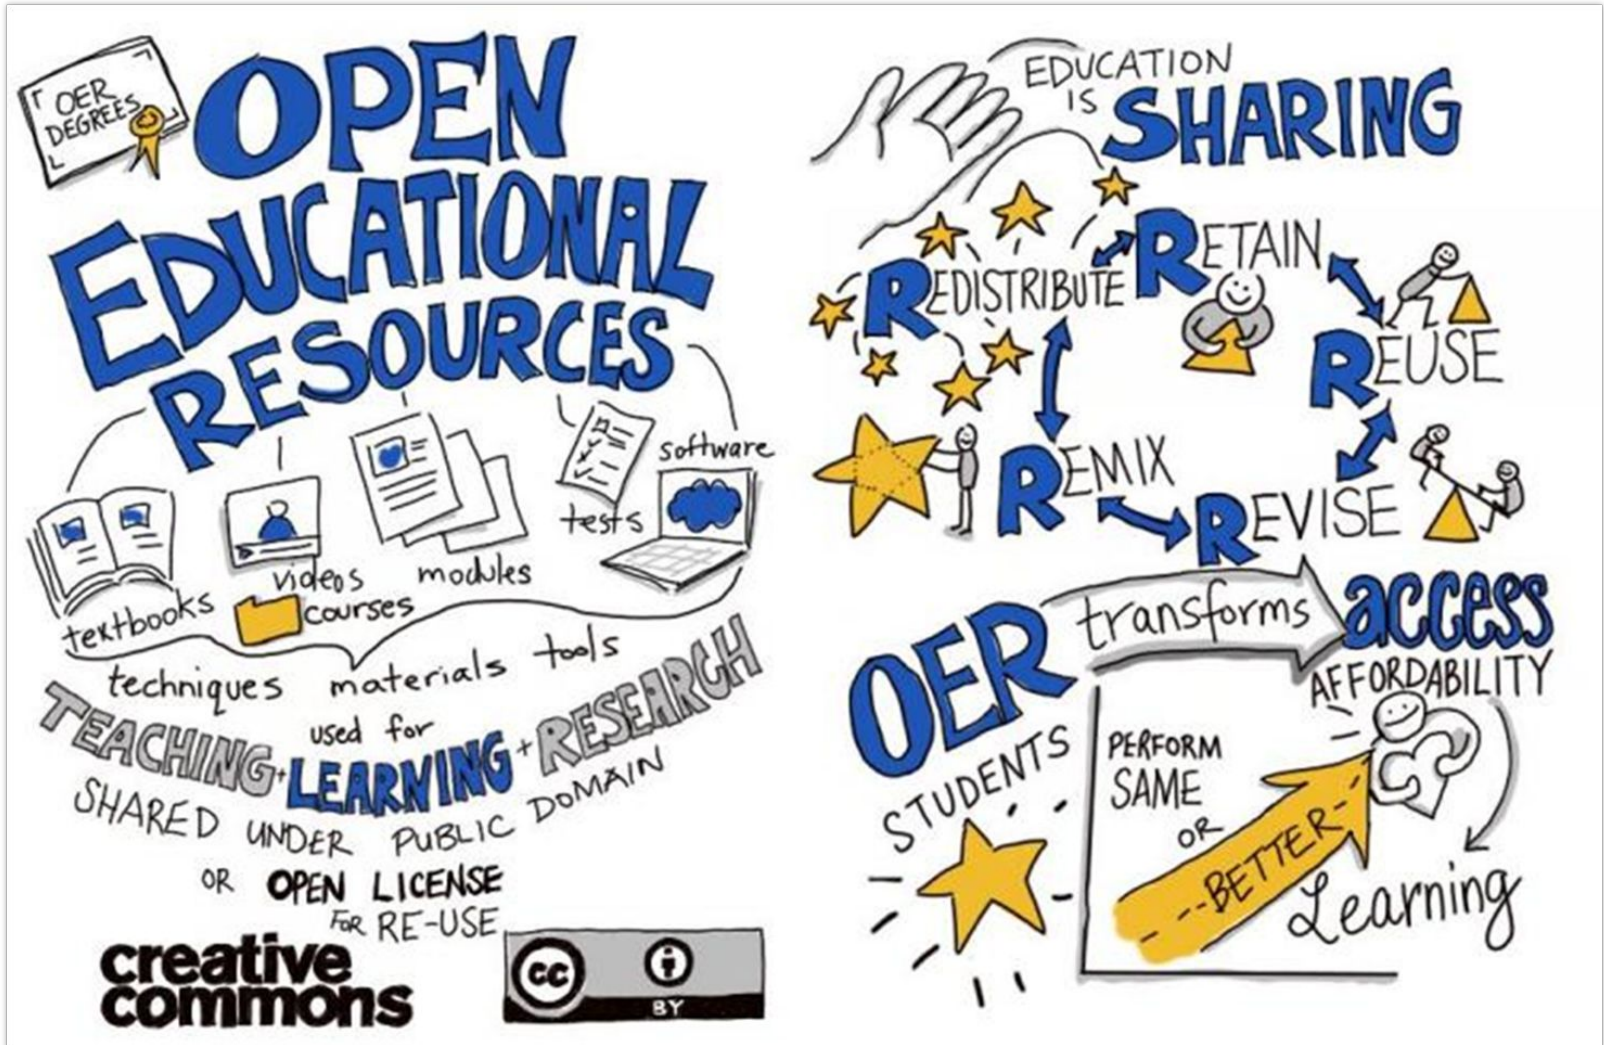 OER
DEGREES
OPEN
EDUCATIONAL
RESOURCES
textbooks
videos
courses
modules
tests
software
techniques materials tools
used for
TEACHING + LEARNING + RESEARCH
SHARED UNDER PUBLIC DOMAIN
OR OPEN LICENSE
FOR RE-USE
creative
commons
cc
BY
EDUCATION
IS SHARING
REDISTRIBUTE
RETAIN
REUSE
REMIX
REVISE
OER transforms access
AFFORDABILITY
STUDENTS
PERFORM
SAME
OR
--BETTER--
Learning